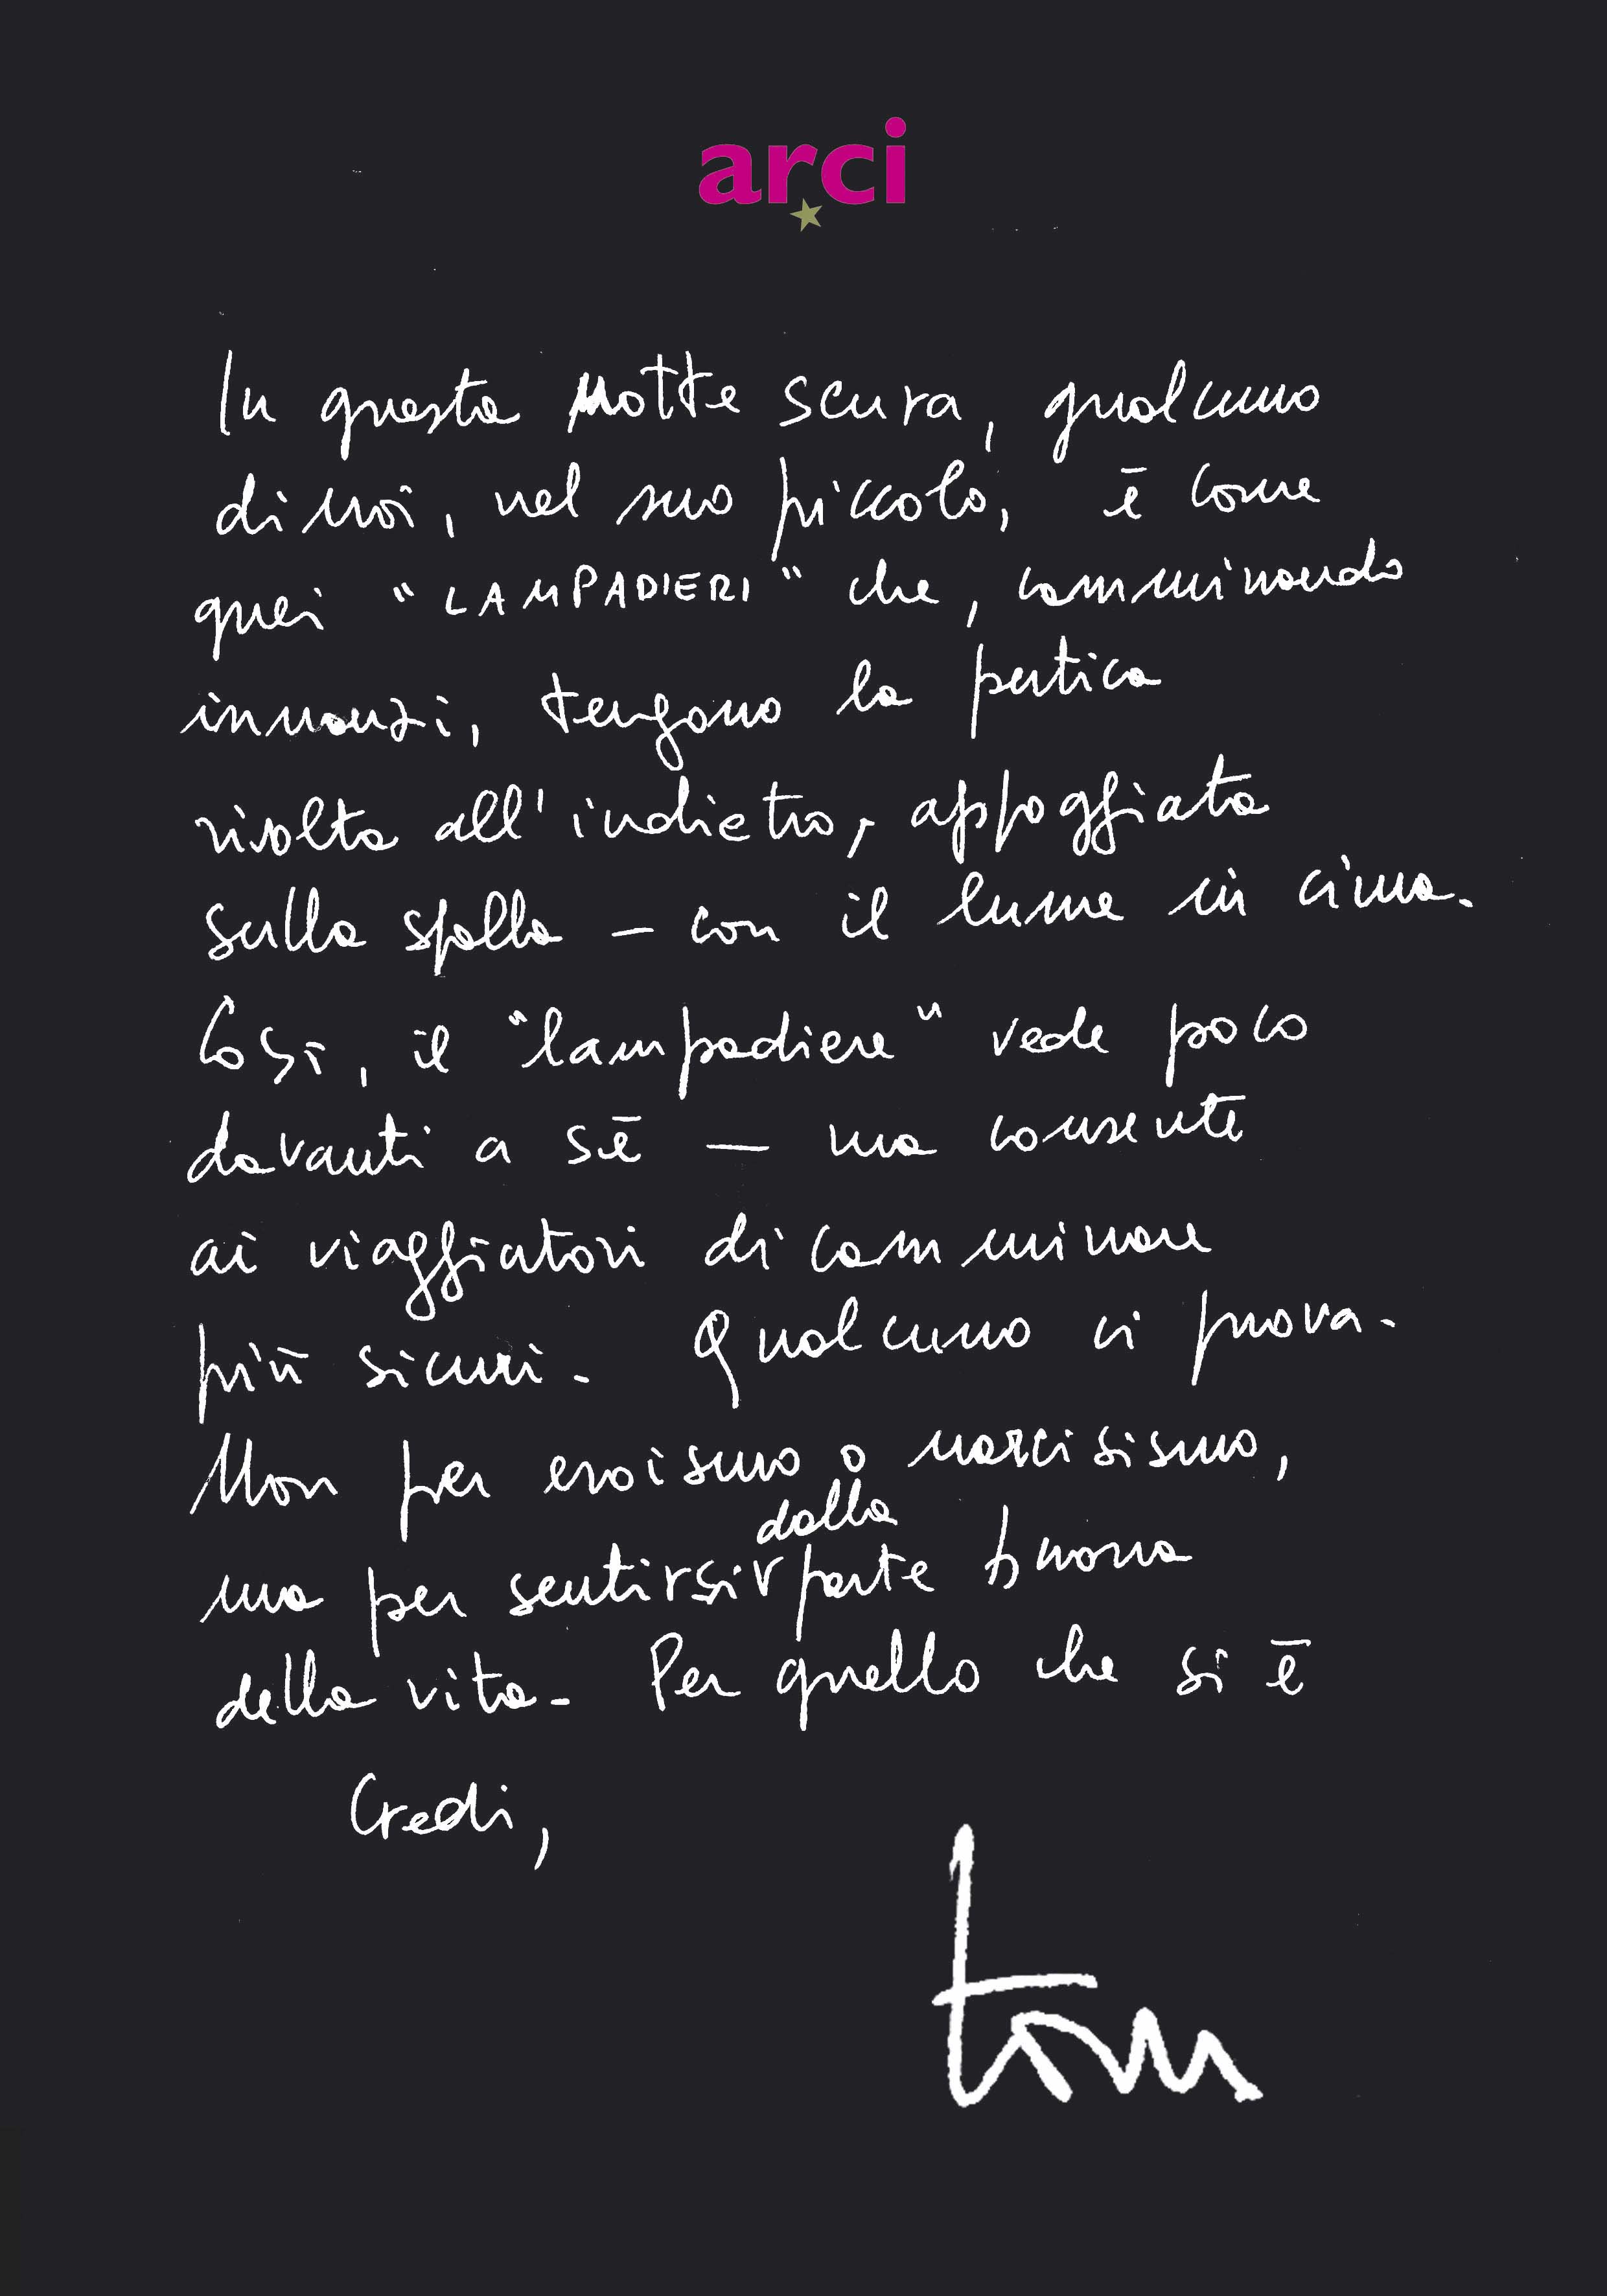 arci
In questa notte scura, qualcuno
di noi, nel suo piccolo, è come
quei "LAMPADIERI" che, camminando
innanzi, tengono la pertica
rivolta all'indietro, appoggiata
sulla spalla – con il lume in cima.
Così, il "lampadiere" vede poco
davanti a sé – ma consente
ai viaggiatori di camminare
più sicuri. Qualcuno ci prova.
Non per eroismo o narcisismo,
ma per sentirsi dalla parte buona
della vita. Per quello che si è
Credi,
tom